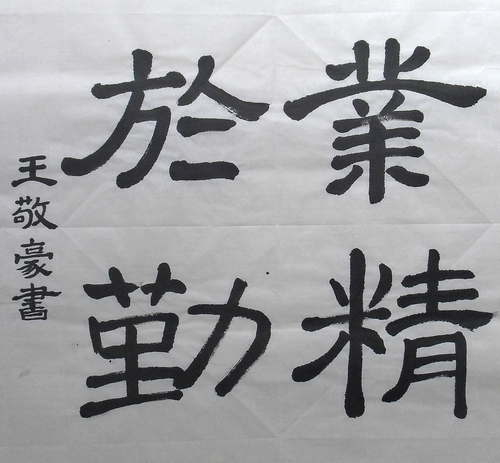 業精
於勤
王敬豪書